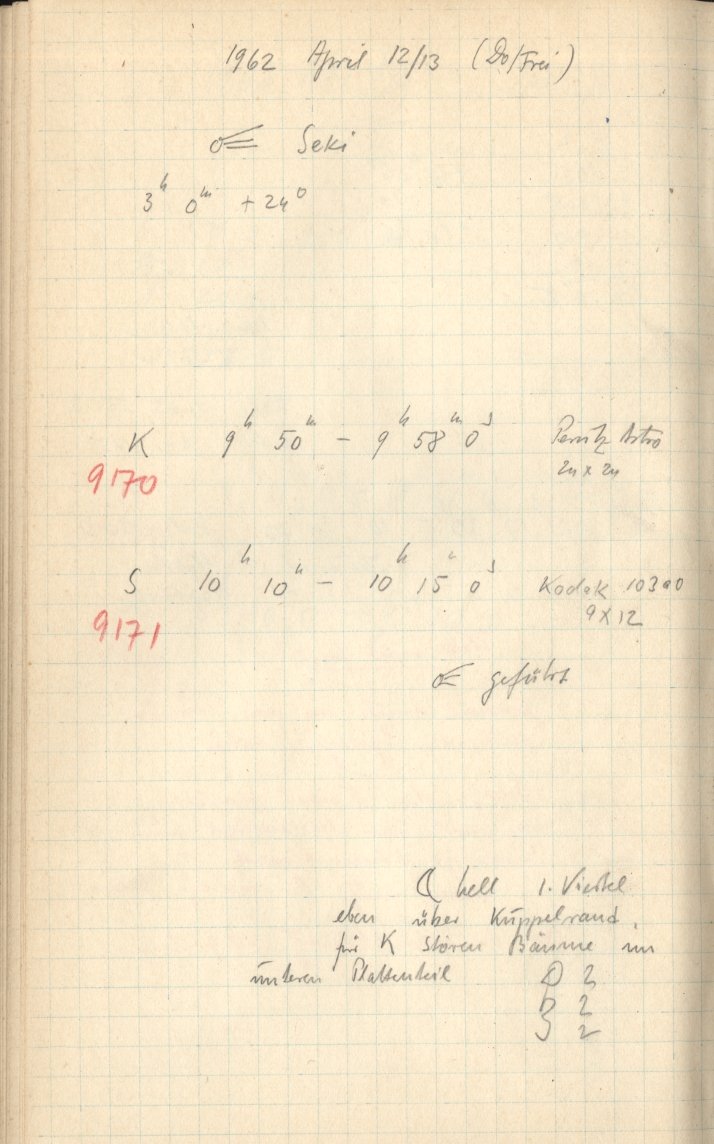 1962 April 12/13 (Do/Frei)
☄ Seki
3ʰ 0ᵐ +24⁰
K 9ʰ 50ᵐ – 9ʰ 58ᵐ 0ˢ Perutz Astro
9170 24 x 24
S 10ʰ 10ᵐ – 10ʰ 15ᵐ 0ˢ Kodak 103a0
9171 9 X 12
☄ geführt
☾ hell 1. Viertel
eben über Kuppelrand,
für K stören Bäume im
unteren Plattenteil
D 2
B 2
2